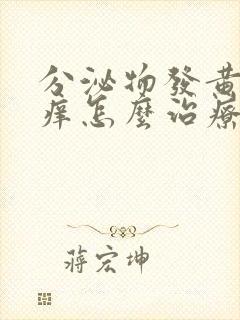 分泌物發黃
痒怎麼治療
蔣宏坤